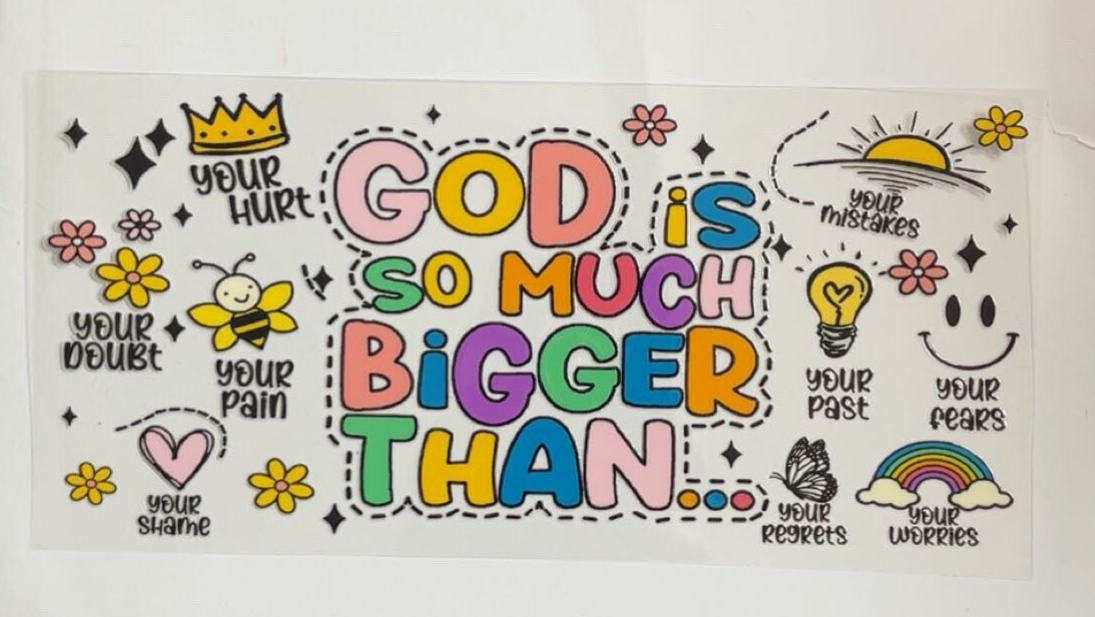 GOD is
SO MUCH
BiGGER
THAN...
YOUR
HURt
YOUR
DOUBt
YOUR
Pain
YOUR
SHame
YOUR
mistakes
YOUR
Past
YOUR
feaRS
YOUR
RegRets
YOUR
WORRies